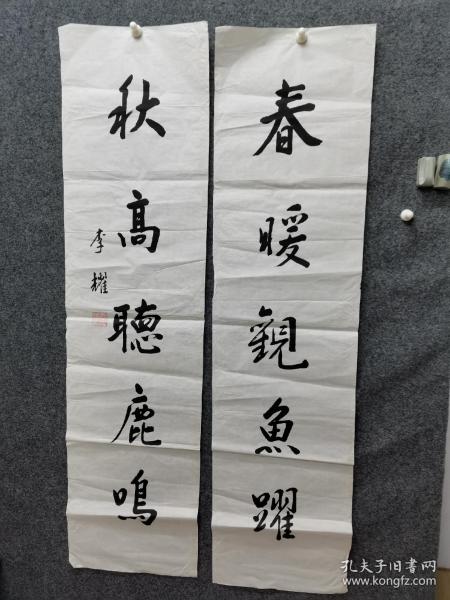 春暖觀魚躍
秋高聽鹿鳴
李耀
孔夫子旧书网
www.kongfz.com